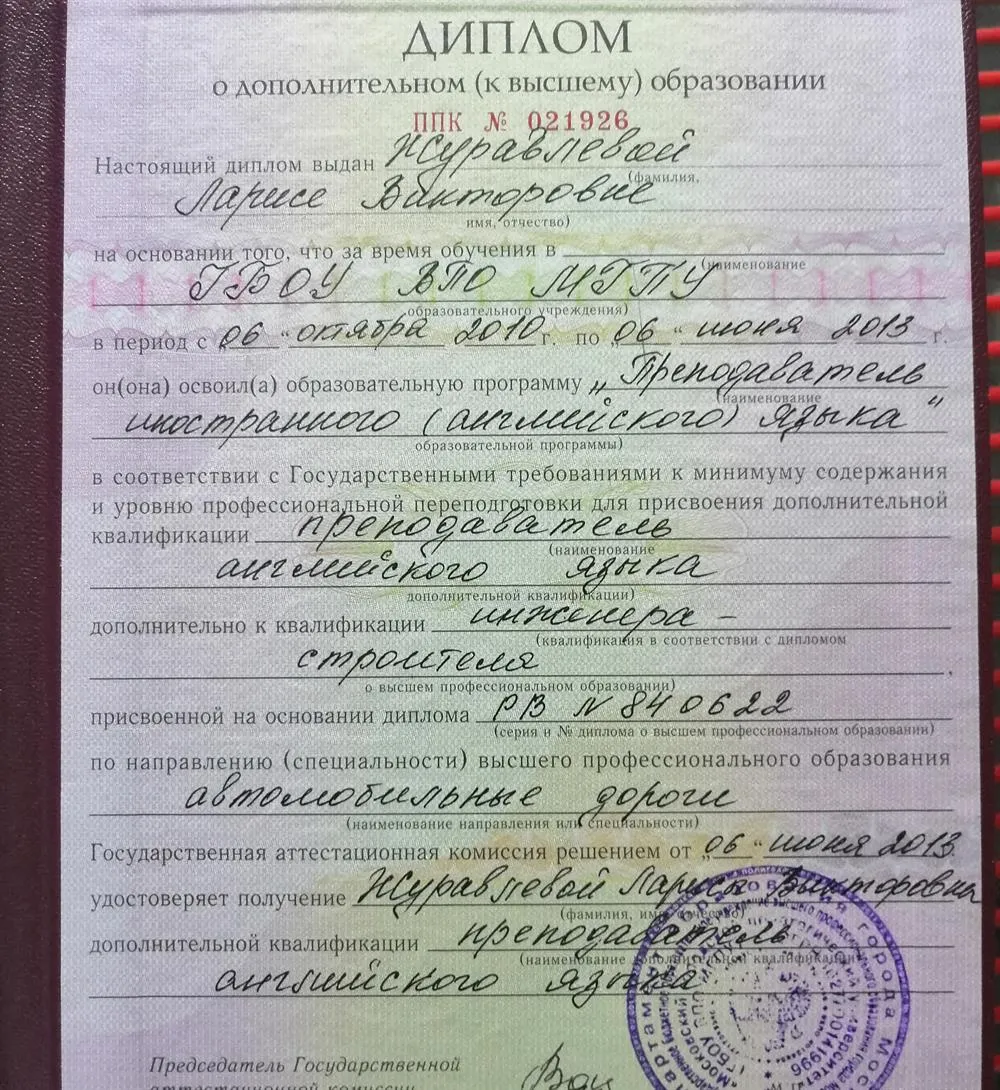 ДИПЛОМ
о дополнительном (к высшему) образовании
ППК № 021926
Настоящий диплом выдан Журавлевой
(фамилия,
Ларисе Викторовне
имя, отчество)
на основании того, что за время обучения в
(наименование
ГБОУ ВПО МГПУ
образовательного учреждения)
в период с „06“ октября 2010 г. по „06“ июня 2013 г.
он(она) освоил(а) образовательную программу „Преподаватель
(наименование
иностранного (английского) языка"
образовательной программы)
в соответствии с Государственными требованиями к минимуму содержания
и уровню профессиональной переподготовки для присвоения дополнительной
квалификации преподаватель
(наименование
английского языка
дополнительной квалификации)
дополнительно к квалификации инженера-
(квалификация в соответствии с дипломом
строителя,
о высшем профессиональном образовании)
присвоенной на основании диплома РВ N 840622
(серия и № диплома о высшем профессиональном образовании)
по направлению (специальности) высшего профессионального образования
автомобильные дороги
(наименование направления или специальности)
Государственная аттестационная комиссия решением от „06“ июня 2013
удостоверяет получение Журавлевой Лариса Викторовна
(фамилия, имя, отчество)
дополнительной квалификации преподаватель
(наименование дополнительной квалификации)
английского языка
Председатель Государственной
аттестационной комиссии